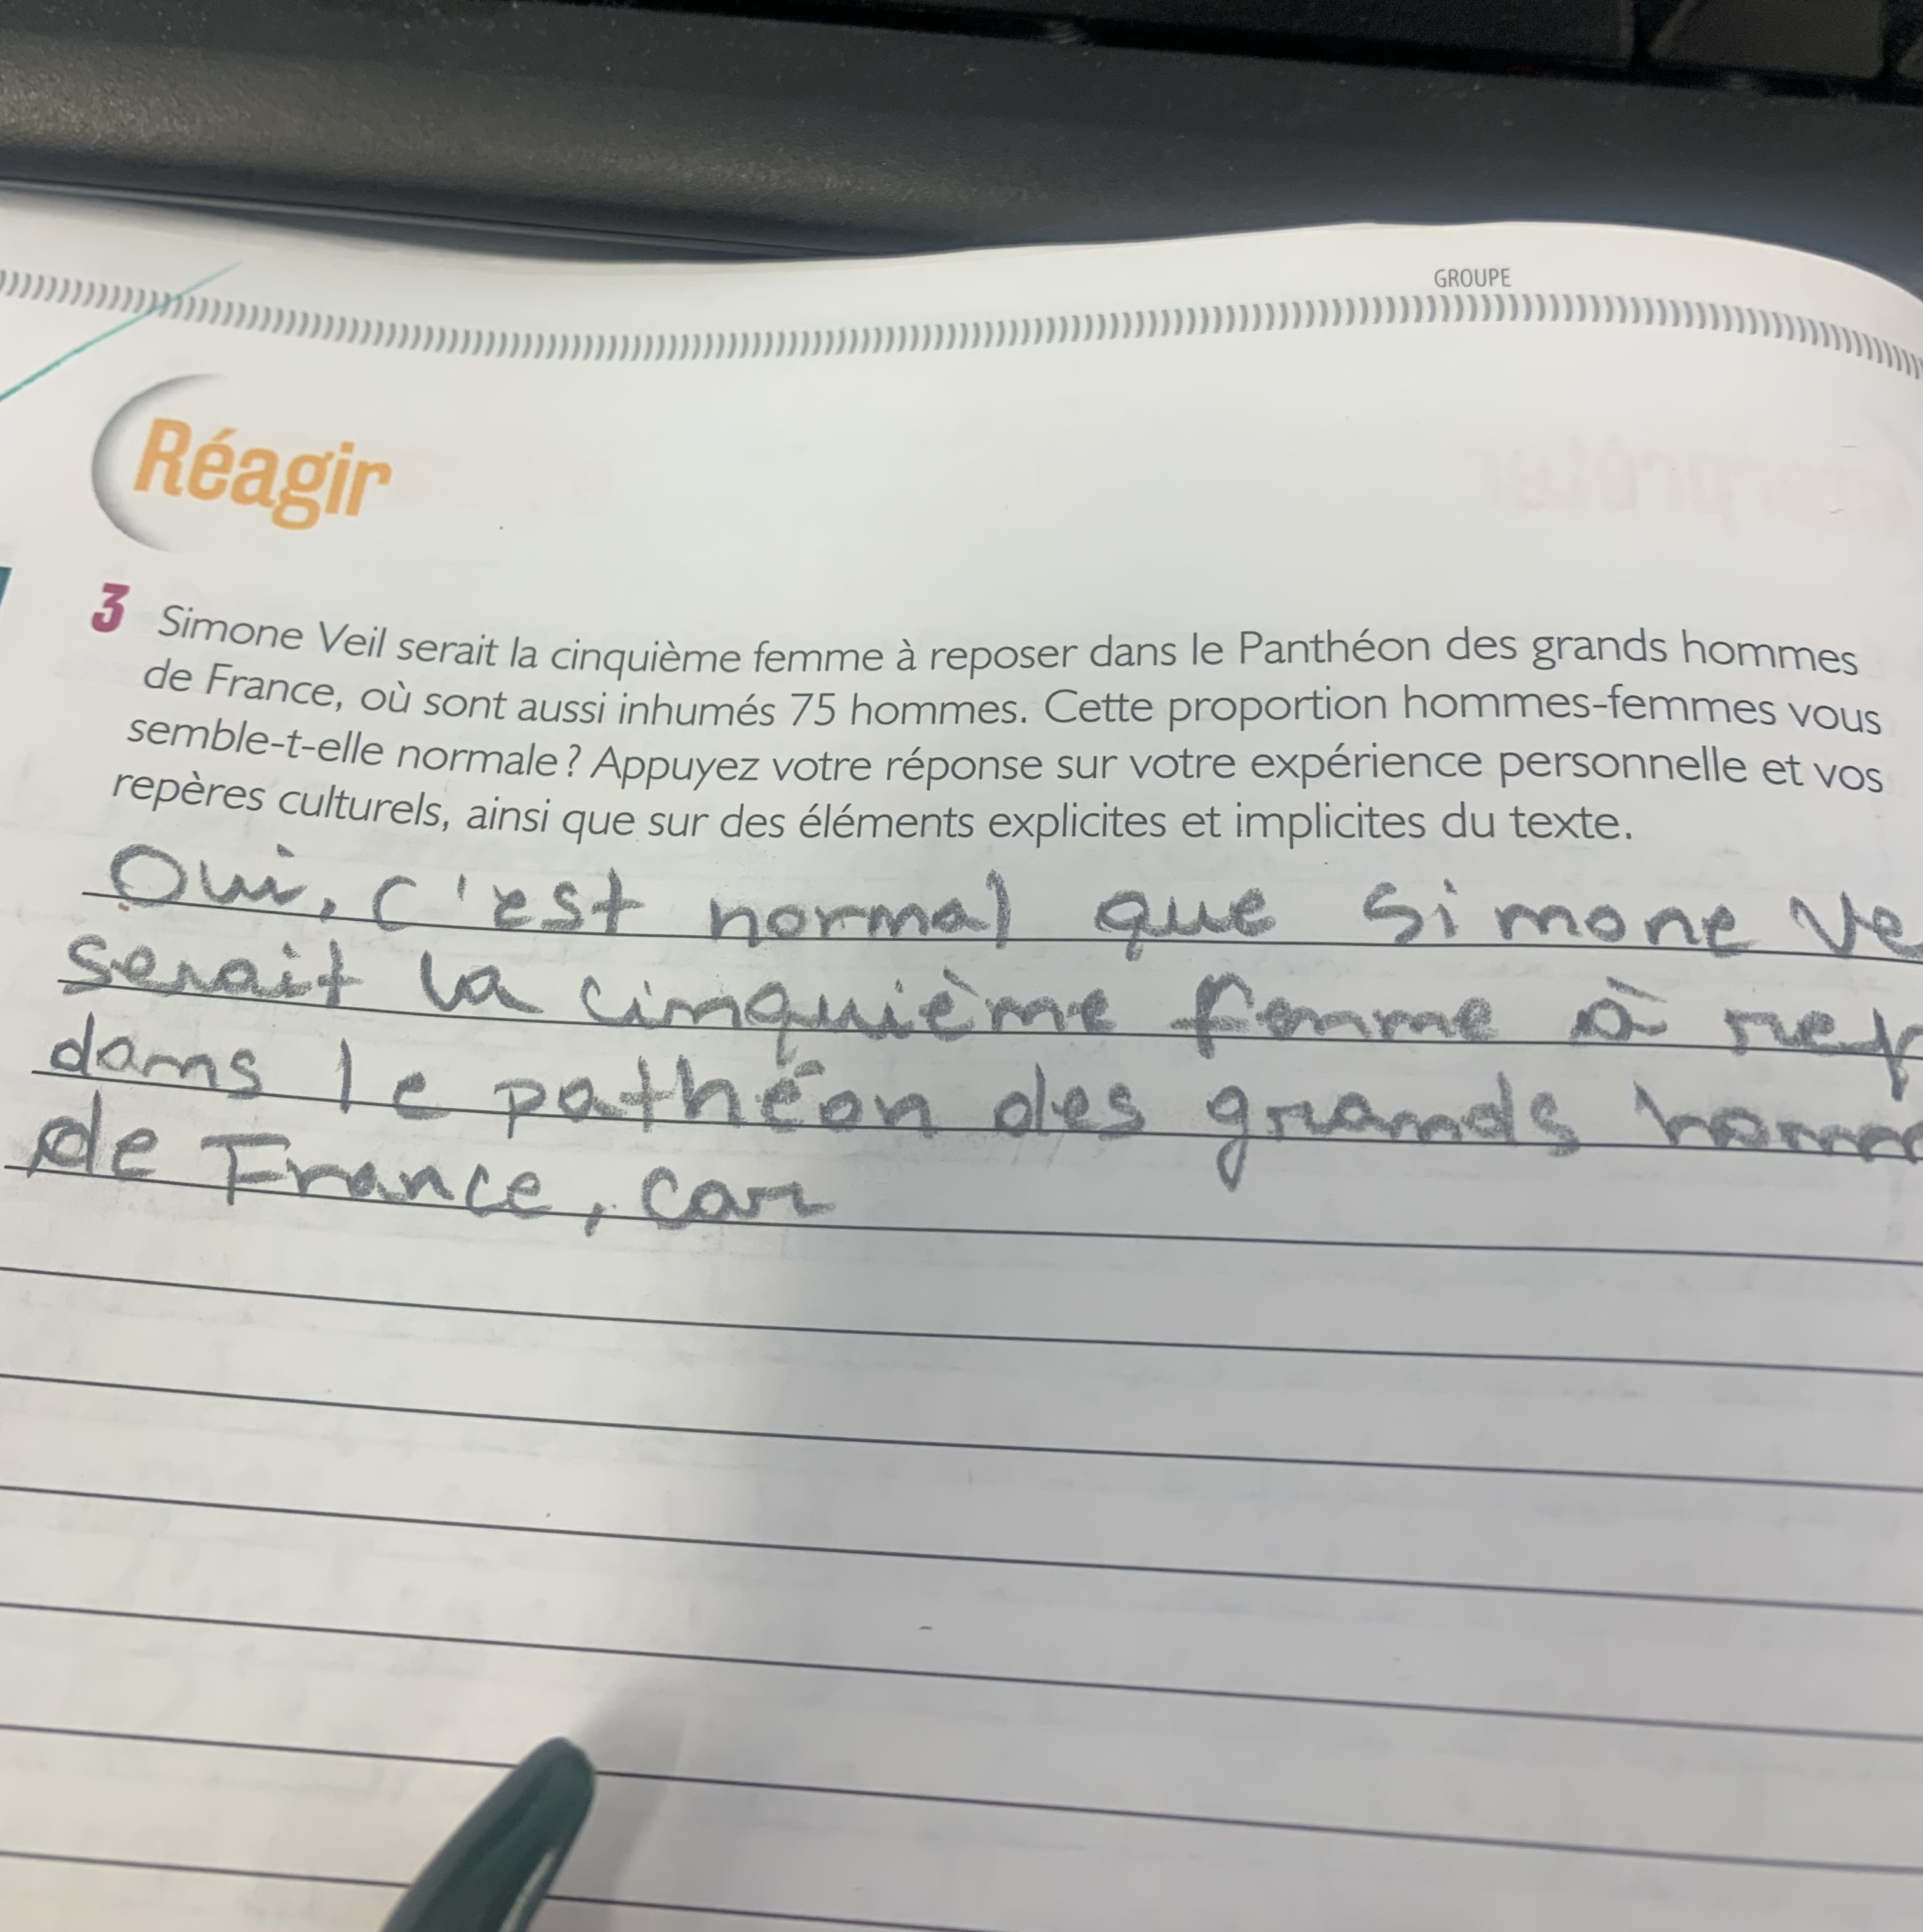 GROUPE
Réagir
3 Simone Veil serait la cinquième femme à reposer dans le Panthéon des grands hommes
de France, où sont aussi inhumés 75 hommes. Cette proportion hommes-femmes vous
semble-t-elle normale ? Appuyez votre réponse sur votre expérience personnelle et vos
repères culturels, ainsi que sur des éléments explicites et implicites du texte.
Oui, c'est normal que Simone Ve
serait la cinquième femme à rep
dans le pathéon des grands homm
de France, car